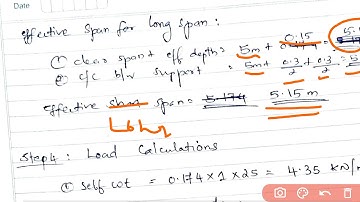 Date
effective span for long span :
① clear span + eff depth = 5m + 0.15 = 5.15
② c/c b/w support = 5m + 0.3/2 + 0.3/2 = 5
effective short span = 5.174 5.15 m
Step 4 : Load Calculations
① Self wt = 0.174 × 1 × 25 = 4.35 kN/m